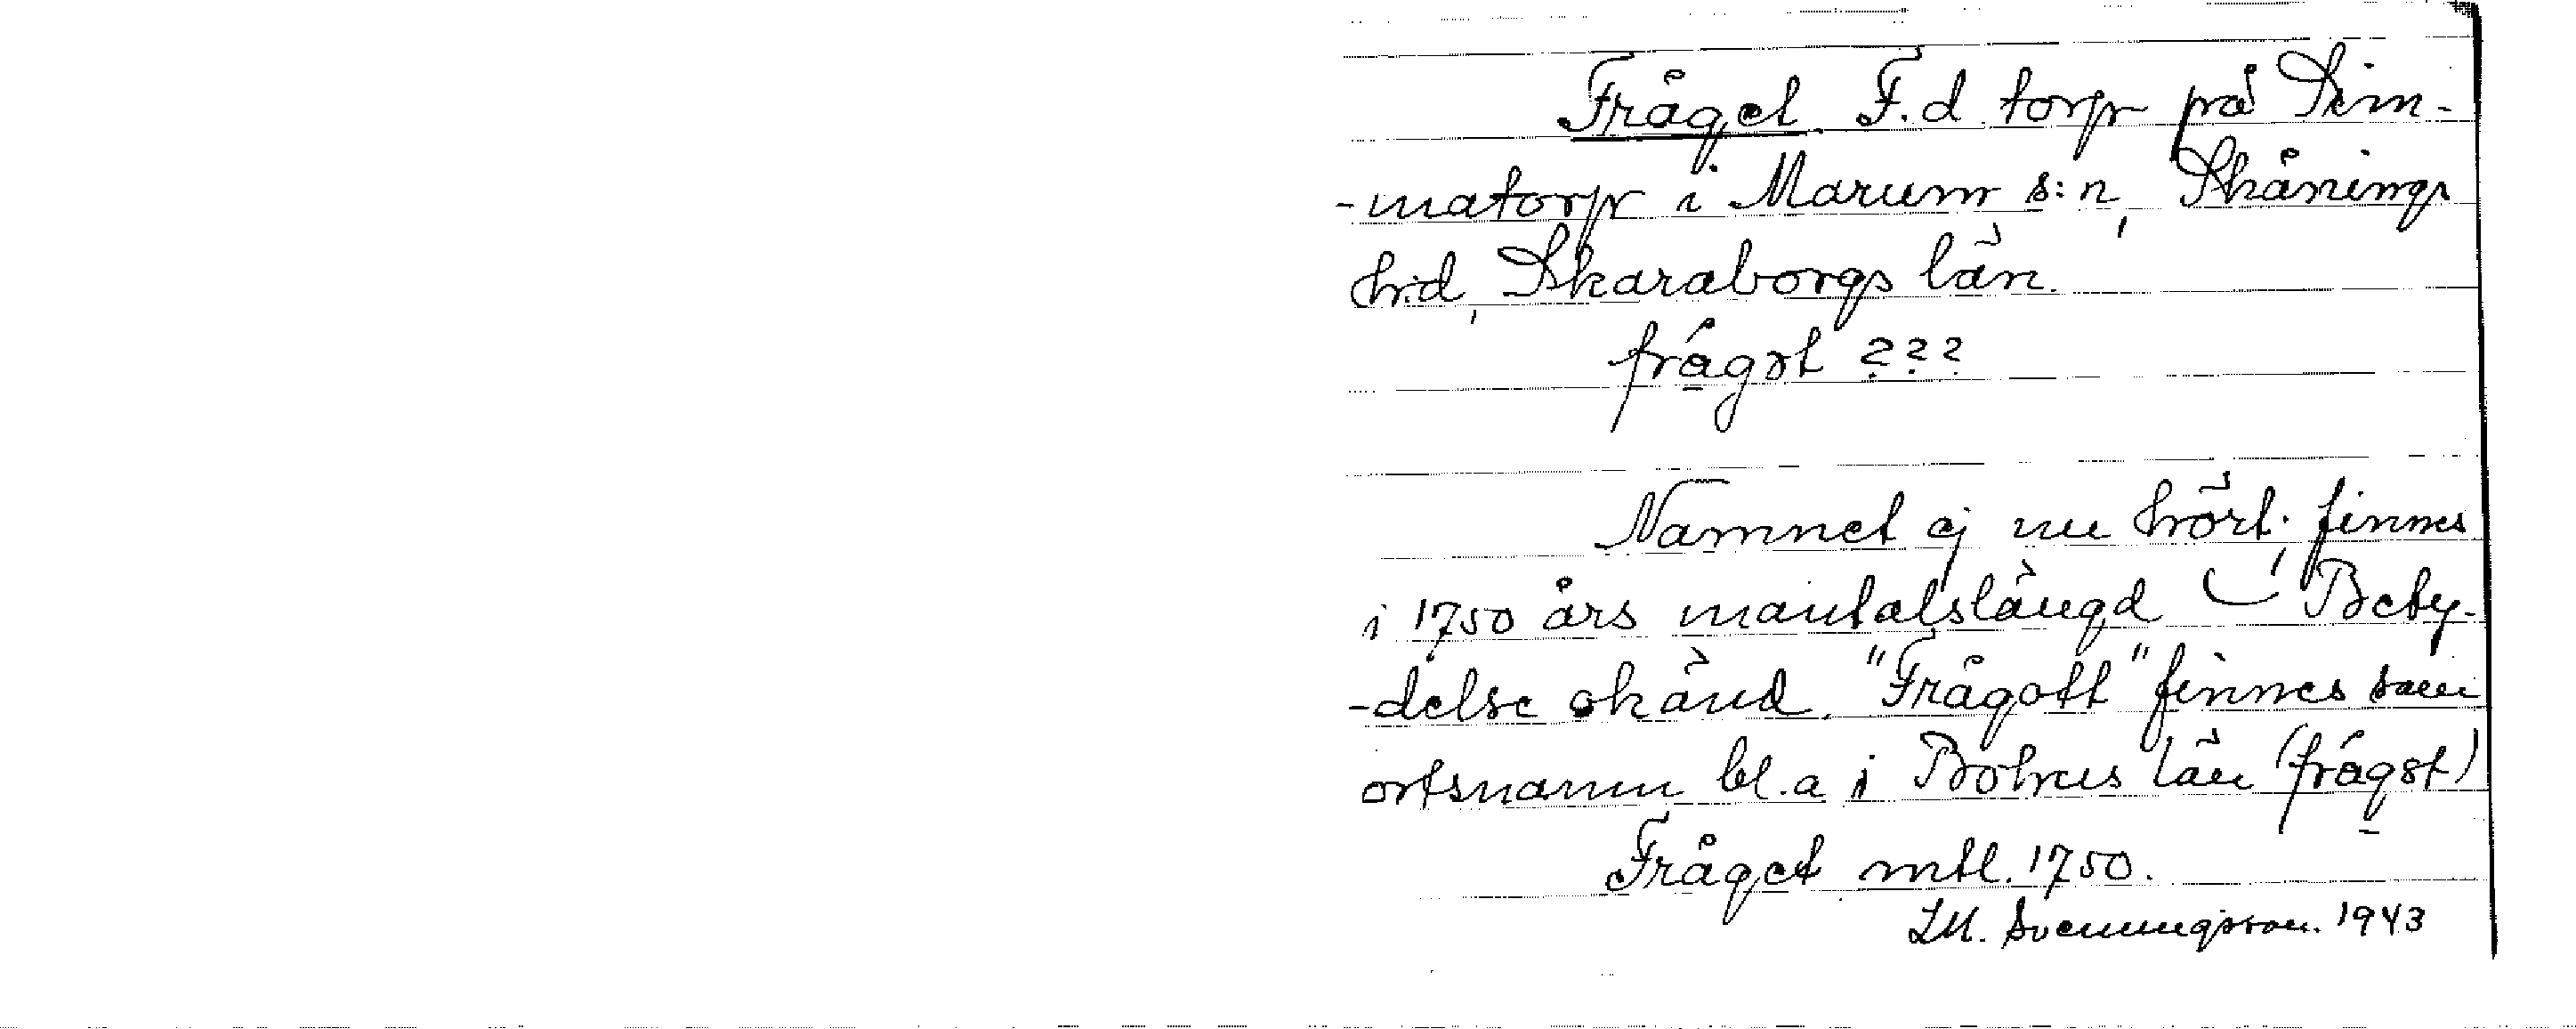 Fråget F.d torp på Sim-
-matorp i Marum s:n, Skånings
h:d, Skaraborgs län.
frågət ???
Namnet ej nu hört; finnes
i 1750 års mantalslängd. Bety-
-delse okänd. "Frågott" finnes som
ortsnamn bl.a i Bohus län (frågət)
Fråget mtl. 1750.
I.M. Svenungsson. 1943